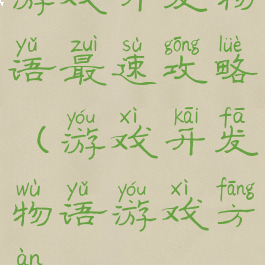 游戏开发物
yǔ zuì sù gōng lüè
语最速攻略
yóu xì kāi fā
（游戏开发
wù yǔ yóu xì fāng
物语游戏方
àn